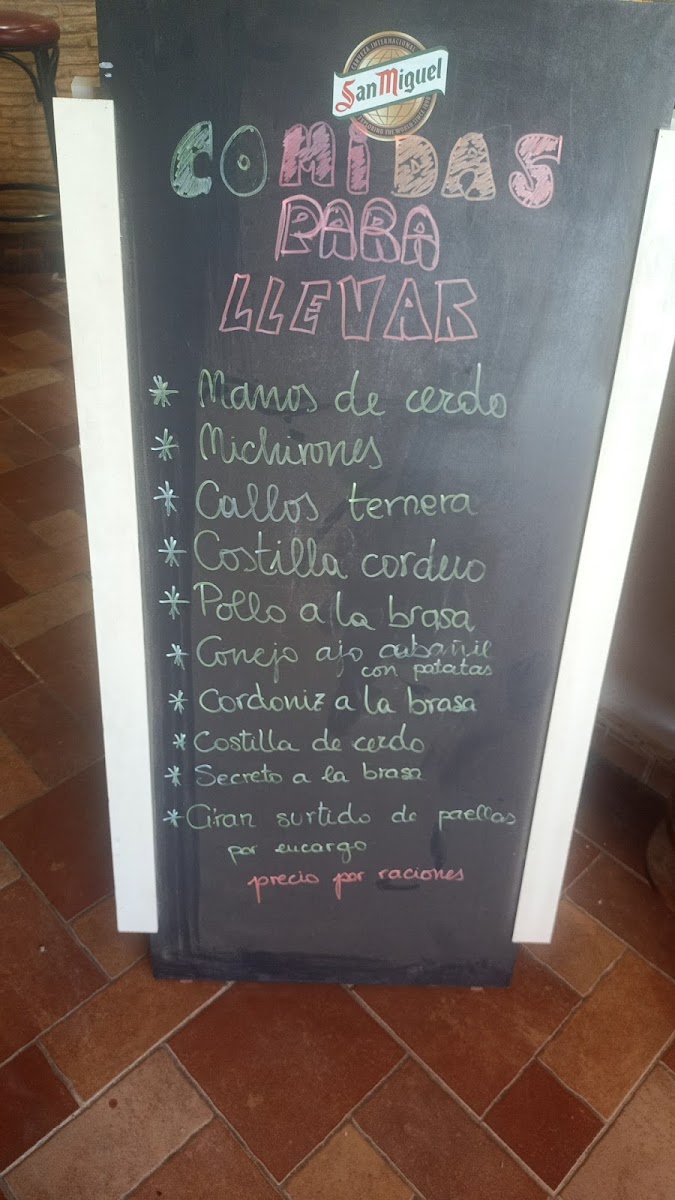 CERVEZA INTERNACIONAL
San Miguel
EXPLORING THE WORLD SINCE 1890
COMIDAS
PARA
LLEVAR
* Manos de cerdo
* Michirones
* Callos ternera
* Costilla cordero
* Pollo a la brasa
* Conejo ajo cabañil
con patatas
* Cordoniz a la brasa
* Costilla de cerdo
* Secreto a la brasa
* Gran surtido de paellas
por encargo
precio por raciones